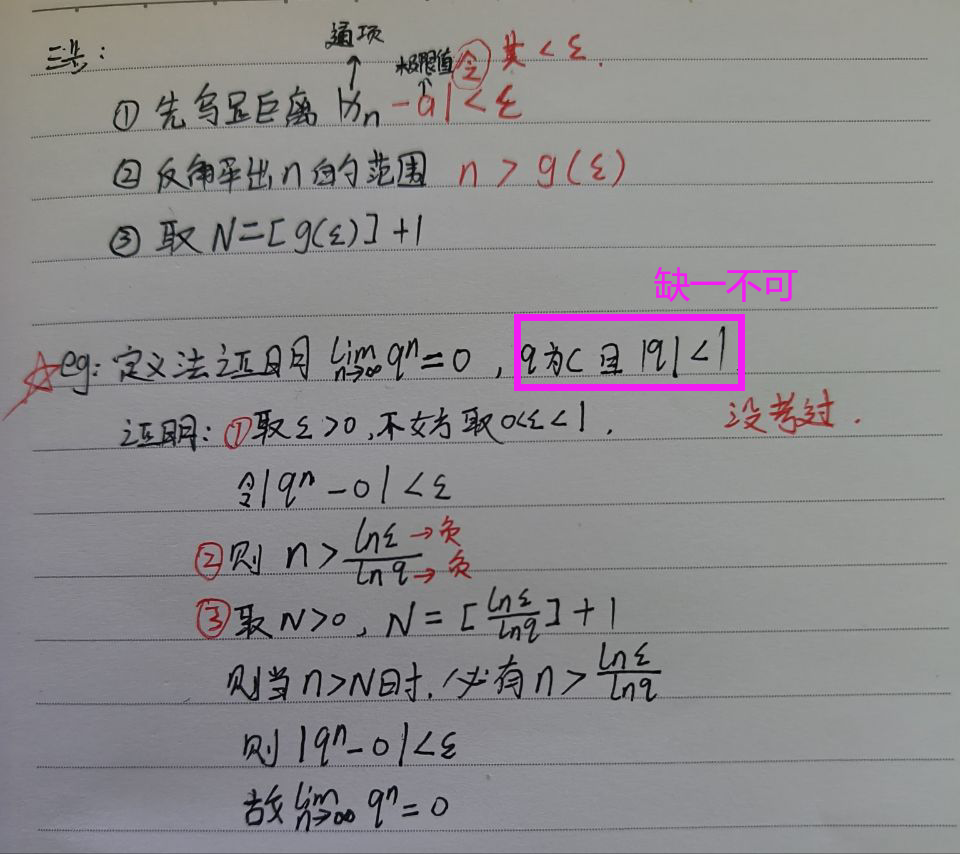 三步：
通项
极限值 令 其 < ε.
① 先写显距离 |xn - a| < ε
② 反解出n的范围 n > g(ε)
③ 取 N = [g(ε)] + 1
缺一不可
eg: 定义法证明 lim n→∞ qⁿ = 0 , q为C 且 |q| < 1
证明: ① 取 ε > 0 , 不妨取 0<ε<1 . 没考过.
令 |qⁿ - 0| < ε
② 则 n > lnε/lnq → 负 → 负
③ 取 N>0 , N = [lnε/lnq] + 1
则当 n>N 时. 必有 n > lnε/lnq
则 |qⁿ - 0| < ε
故 lim n→∞ qⁿ = 0